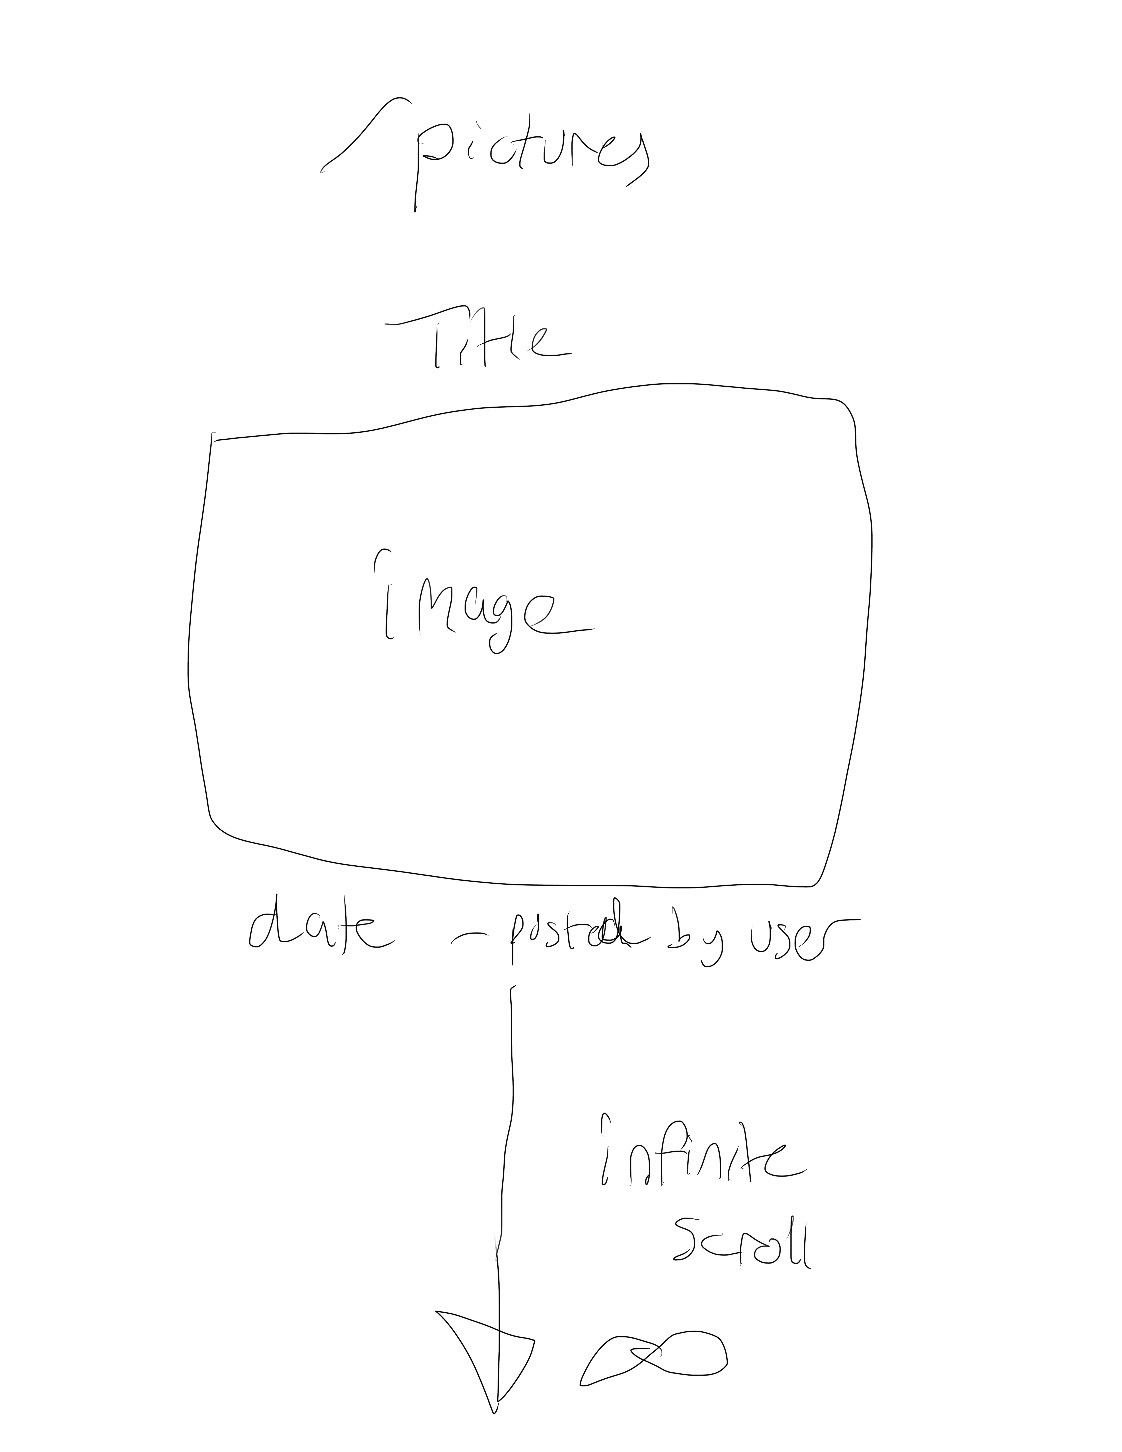 /pictures
Title
image
date - posted by user
infinite
scroll
∞